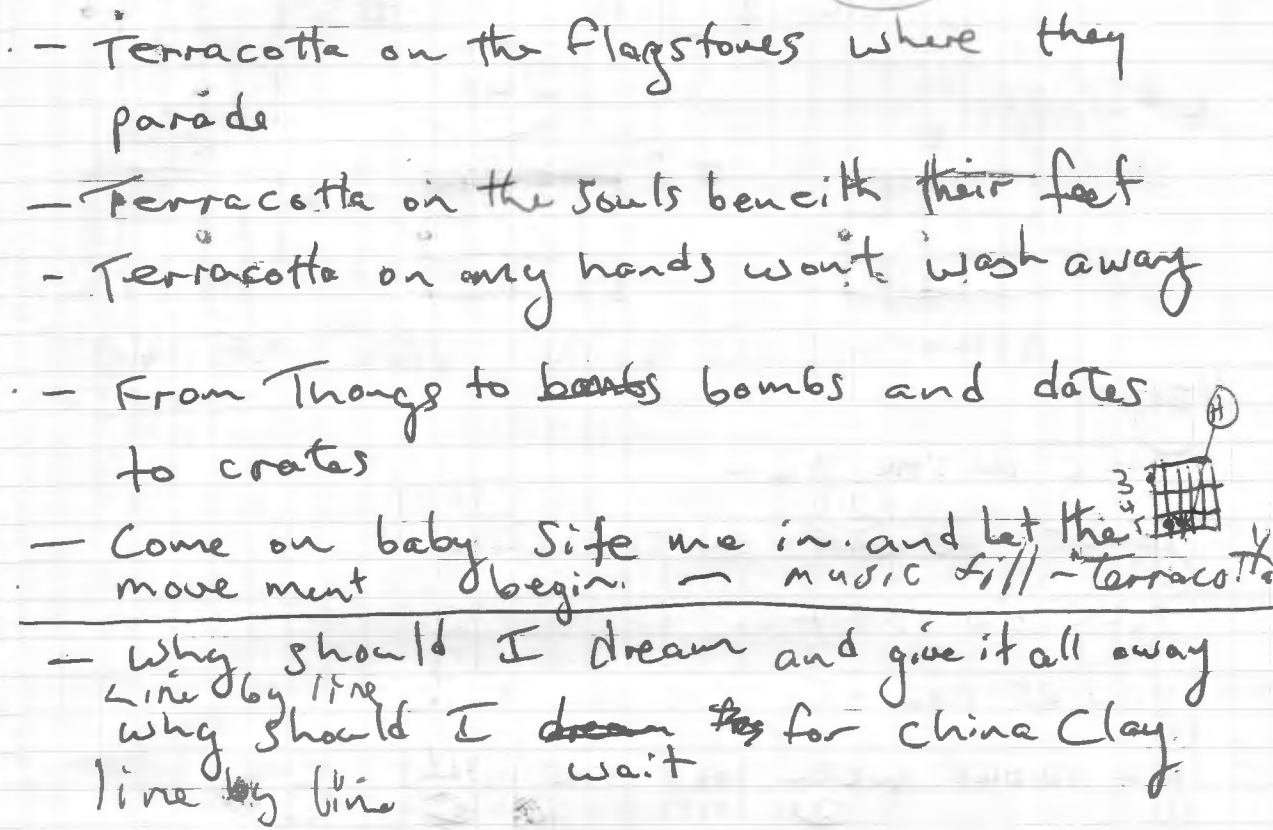 - Terracotta on the flagstones where they
parade
- Terracotta on the souls beneith their feet
- Terracotta on my hands won't wash away
- From Thongs to bombs bombs and dates
to crates
- Come on baby Sife me in. and Let the
move ment begin. - music fill - Terracotta
- Why should I dream and give it all away
Line by line
why should I dream for china Clay
wait
line by line
H
3
4
5